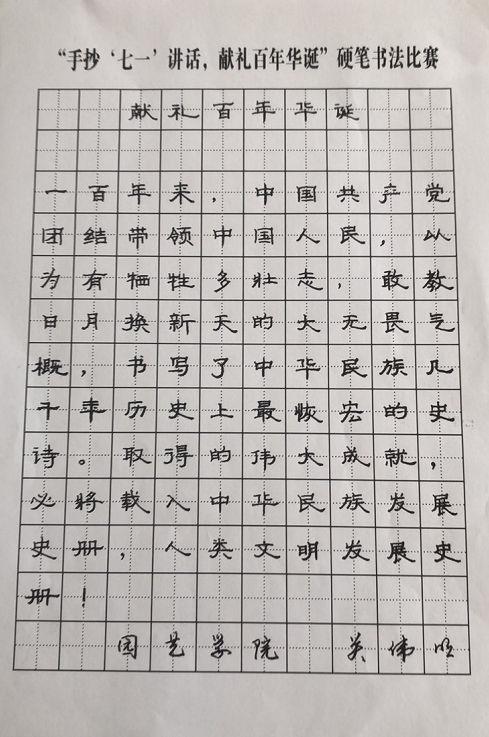 “手抄‘七一’讲话，献礼百年华诞”硬笔书法比赛
献礼百年华诞
一百年来，中国共产党
团结带领中国人民，以
为有牺牲多壮志，敢教
日月换新天的大无畏气
概，书写了中华民族几
千年历史上最恢宏的史
诗。取得的伟大成就，
必将载入中华民族发展
史册，人类文明发展史
册！
园艺学院 吴伟明